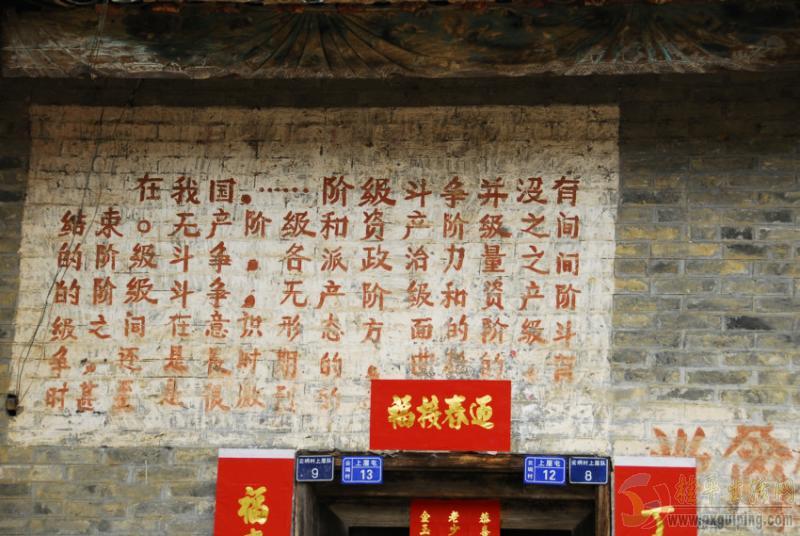 在我国，……阶级斗争并没有
结束。无产阶级和资产阶级之间
的阶级斗争，各派政治力量之间
的阶级斗争，无产阶级和资产阶
级之间在意识形态方面的阶级斗
争，还是长时期的
时甚至是很激烈的
迎春接福
9
上屋屯
13
上屋屯
12
8
福
恭喜
老少
金玉
www.gxguiping.com